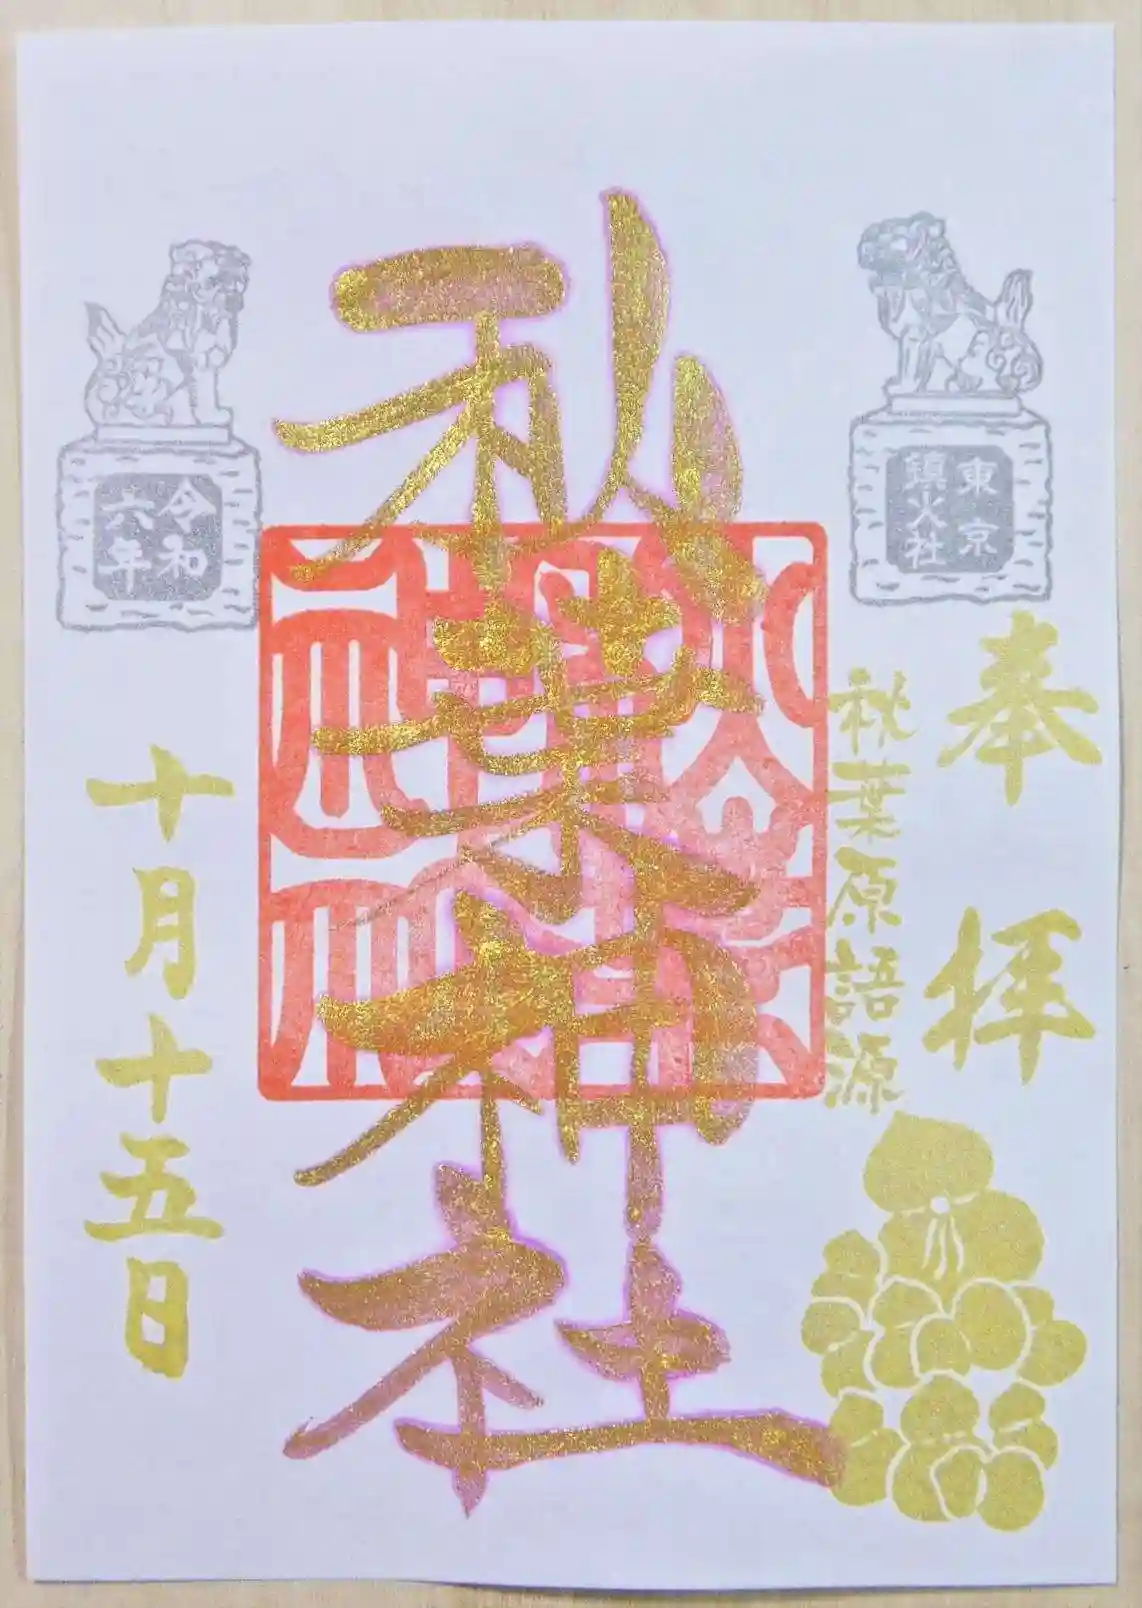 奉拝
東京
鎮火社
秋葉原語源
秋葉神社
令和
六年
十月十五日